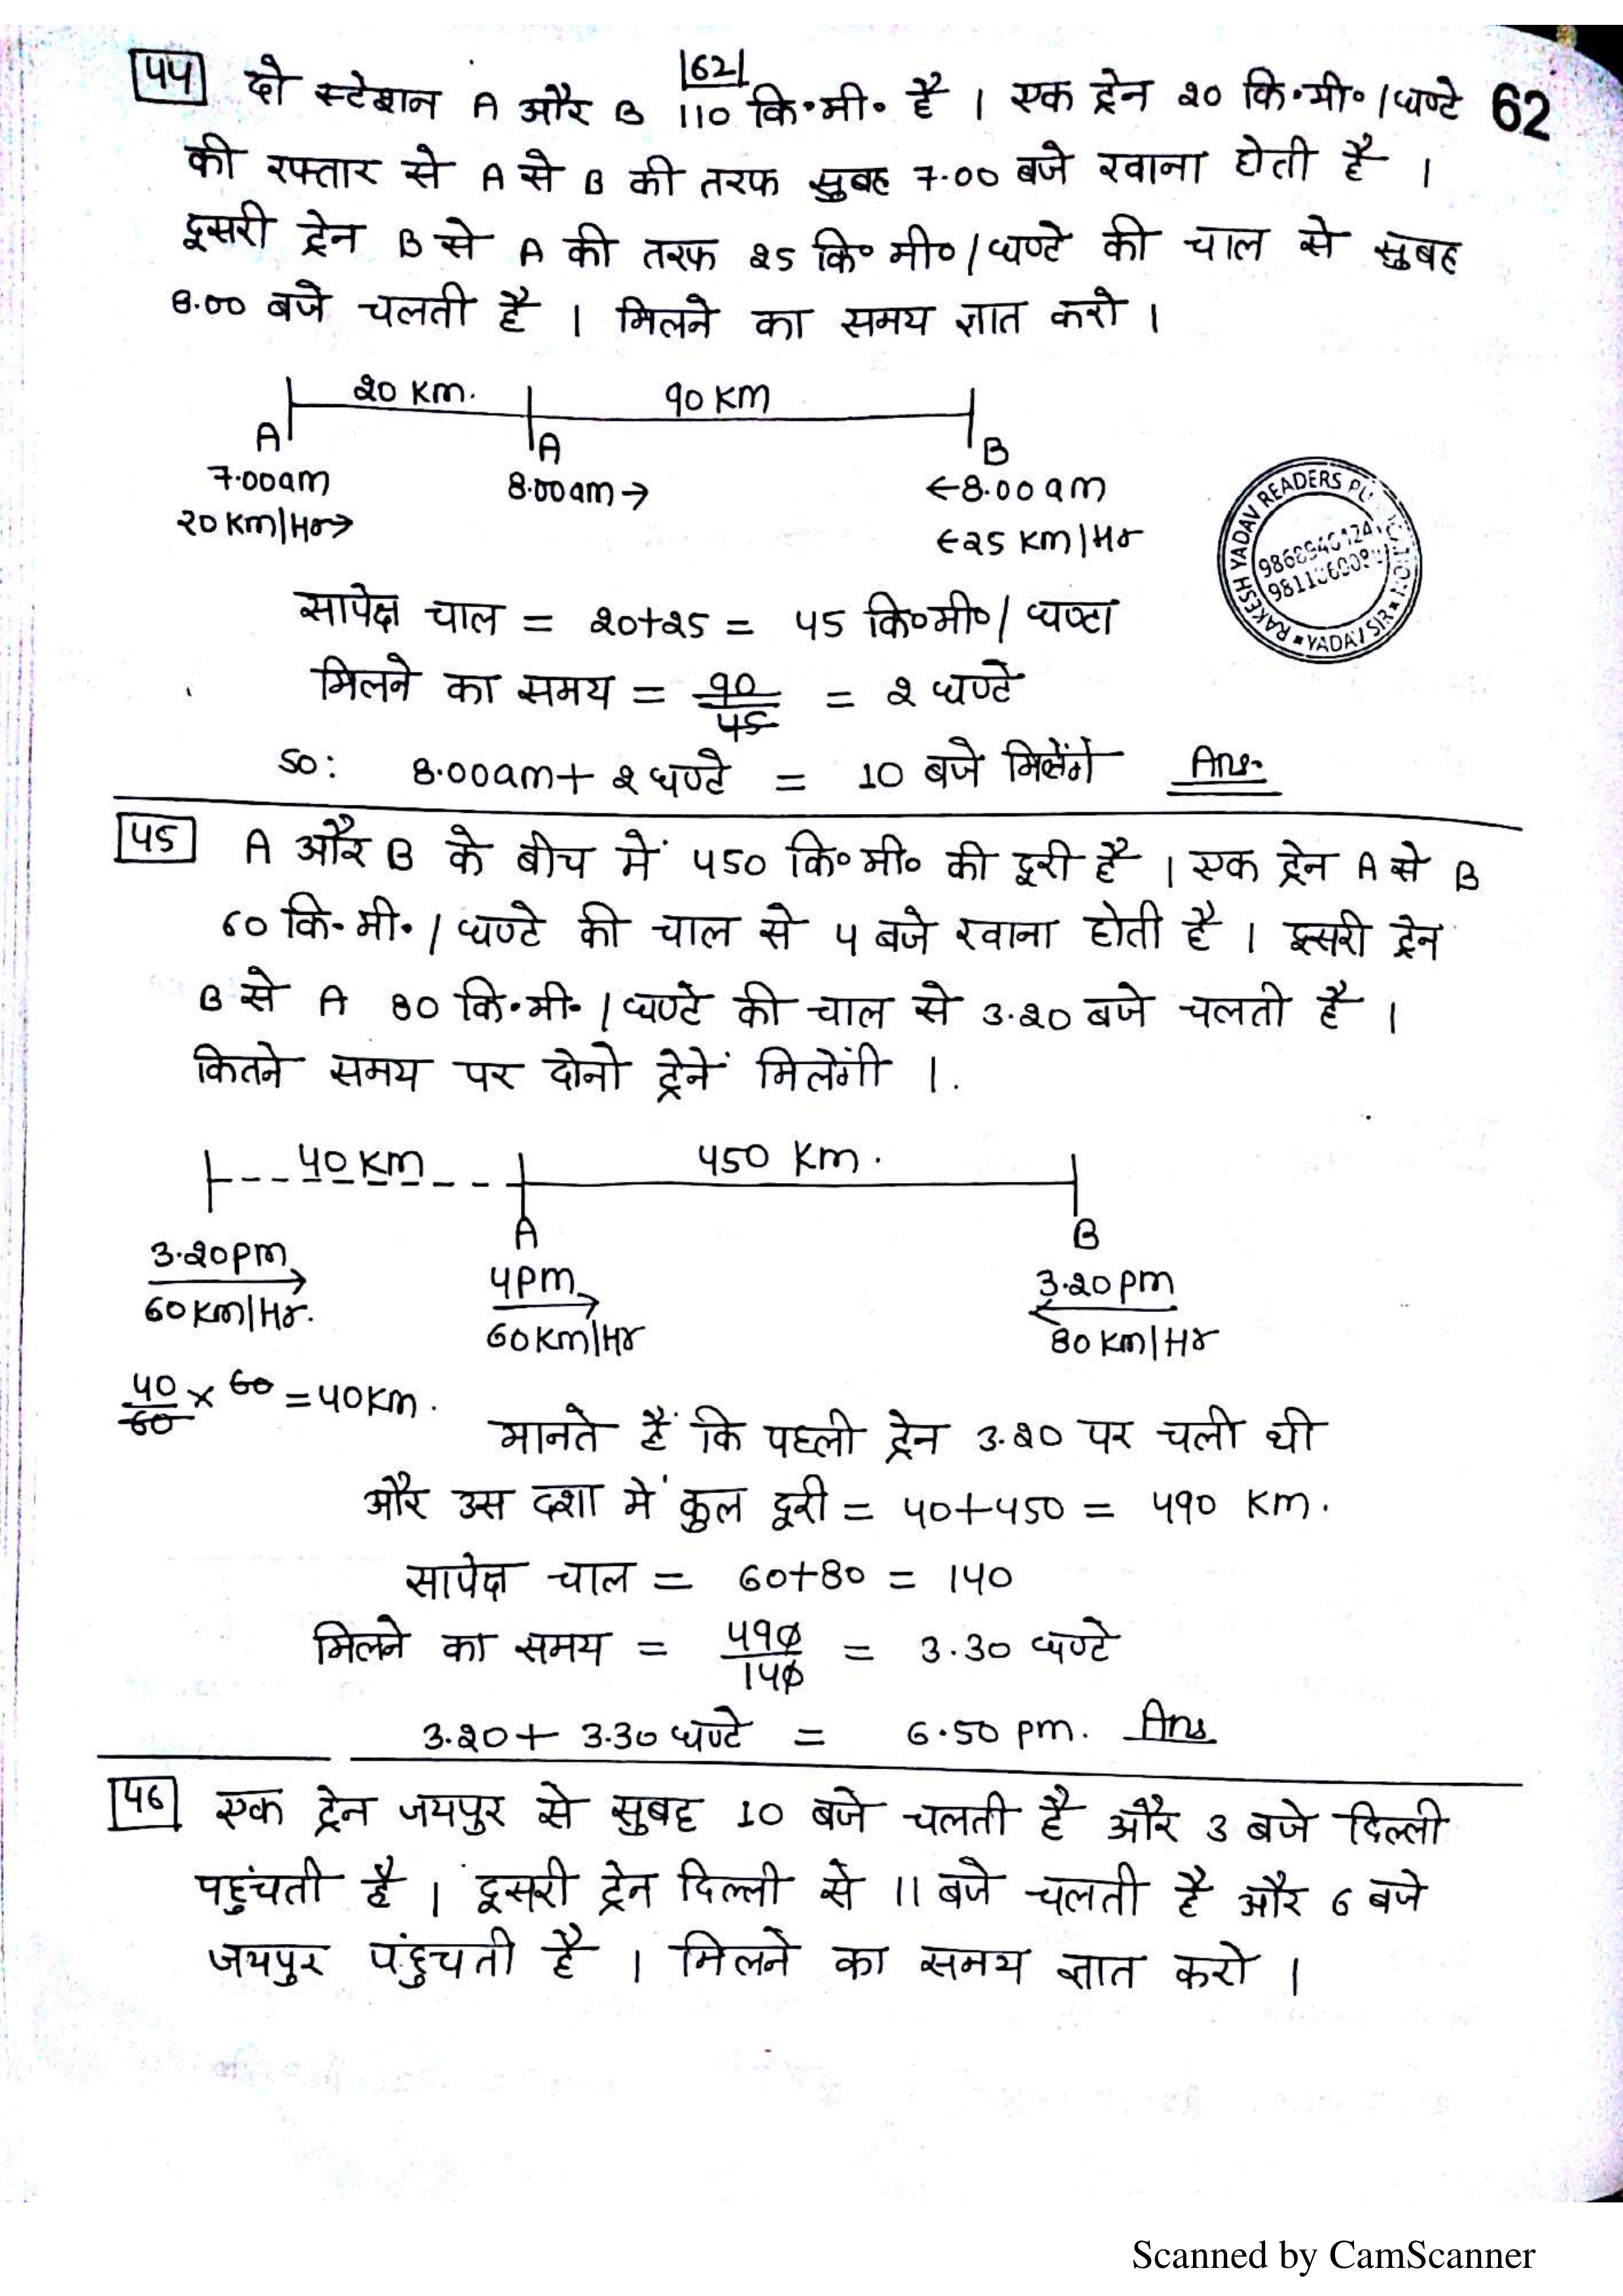 |62|
44 दो स्टेशन A और B 110 कि॰मी॰ है । एक ट्रेन 20 कि॰मी॰/घण्टे 62
की रफ्तार से A से B की तरफ सुबह 7.00 बजे रवाना होती है ।
दूसरी ट्रेन B से A की तरफ 25 कि॰ मी॰/घण्टे की चाल से सुबह
8.00 बजे चलती है । मिलने का समय ज्ञात करो ।
20 Km. 90 KM
A A B
7.00am 8.00am→ ←8.00am
20 Km/Hr→ ←25 Km/Hr
RAKESH YADAV READERS
YADAV SIR
सापेक्ष चाल = 20+25 = 45 कि॰मी॰/घण्टा
मिलने का समय = 90/45 = 2 घण्टे
So: 8.00am+ 2 घण्टे = 10 बजे मिलेंगे Ans.
45 A और B के बीच में 450 कि॰ मी॰ की दूरी है । एक ट्रेन A से B
60 कि.मी./घण्टे की चाल से 4 बजे रवाना होती है । दूसरी ट्रेन
B से A 80 कि.मी./घण्टे की चाल से 3.20 बजे चलती है ।
कितने समय पर दोनो ट्रेनें मिलेंगी ।
40 Km 450 Km.
A B
3.20pm 4pm 3.20pm
60 Km/Hr. 60 Km/Hr 80 Km/Hr
40/60 × 60 = 40Km.
मानते हैं कि पहली ट्रेन 3.20 पर चली थी
और उस दशा में कुल दूरी = 40+450 = 490 Km.
सापेक्ष चाल = 60+80 = 140
मिलने का समय = 490/140 = 3.30 घण्टे
3.20+ 3.30 घण्टे = 6.50 pm. Ans
46 एक ट्रेन जयपुर से सुबह 10 बजे चलती है और 3 बजे दिल्ली
पहुंचती है । दूसरी ट्रेन दिल्ली से 11 बजे चलती है और 6 बजे
जयपुर पंहुचती है । मिलने का समय ज्ञात करो ।
Scanned by CamScanner